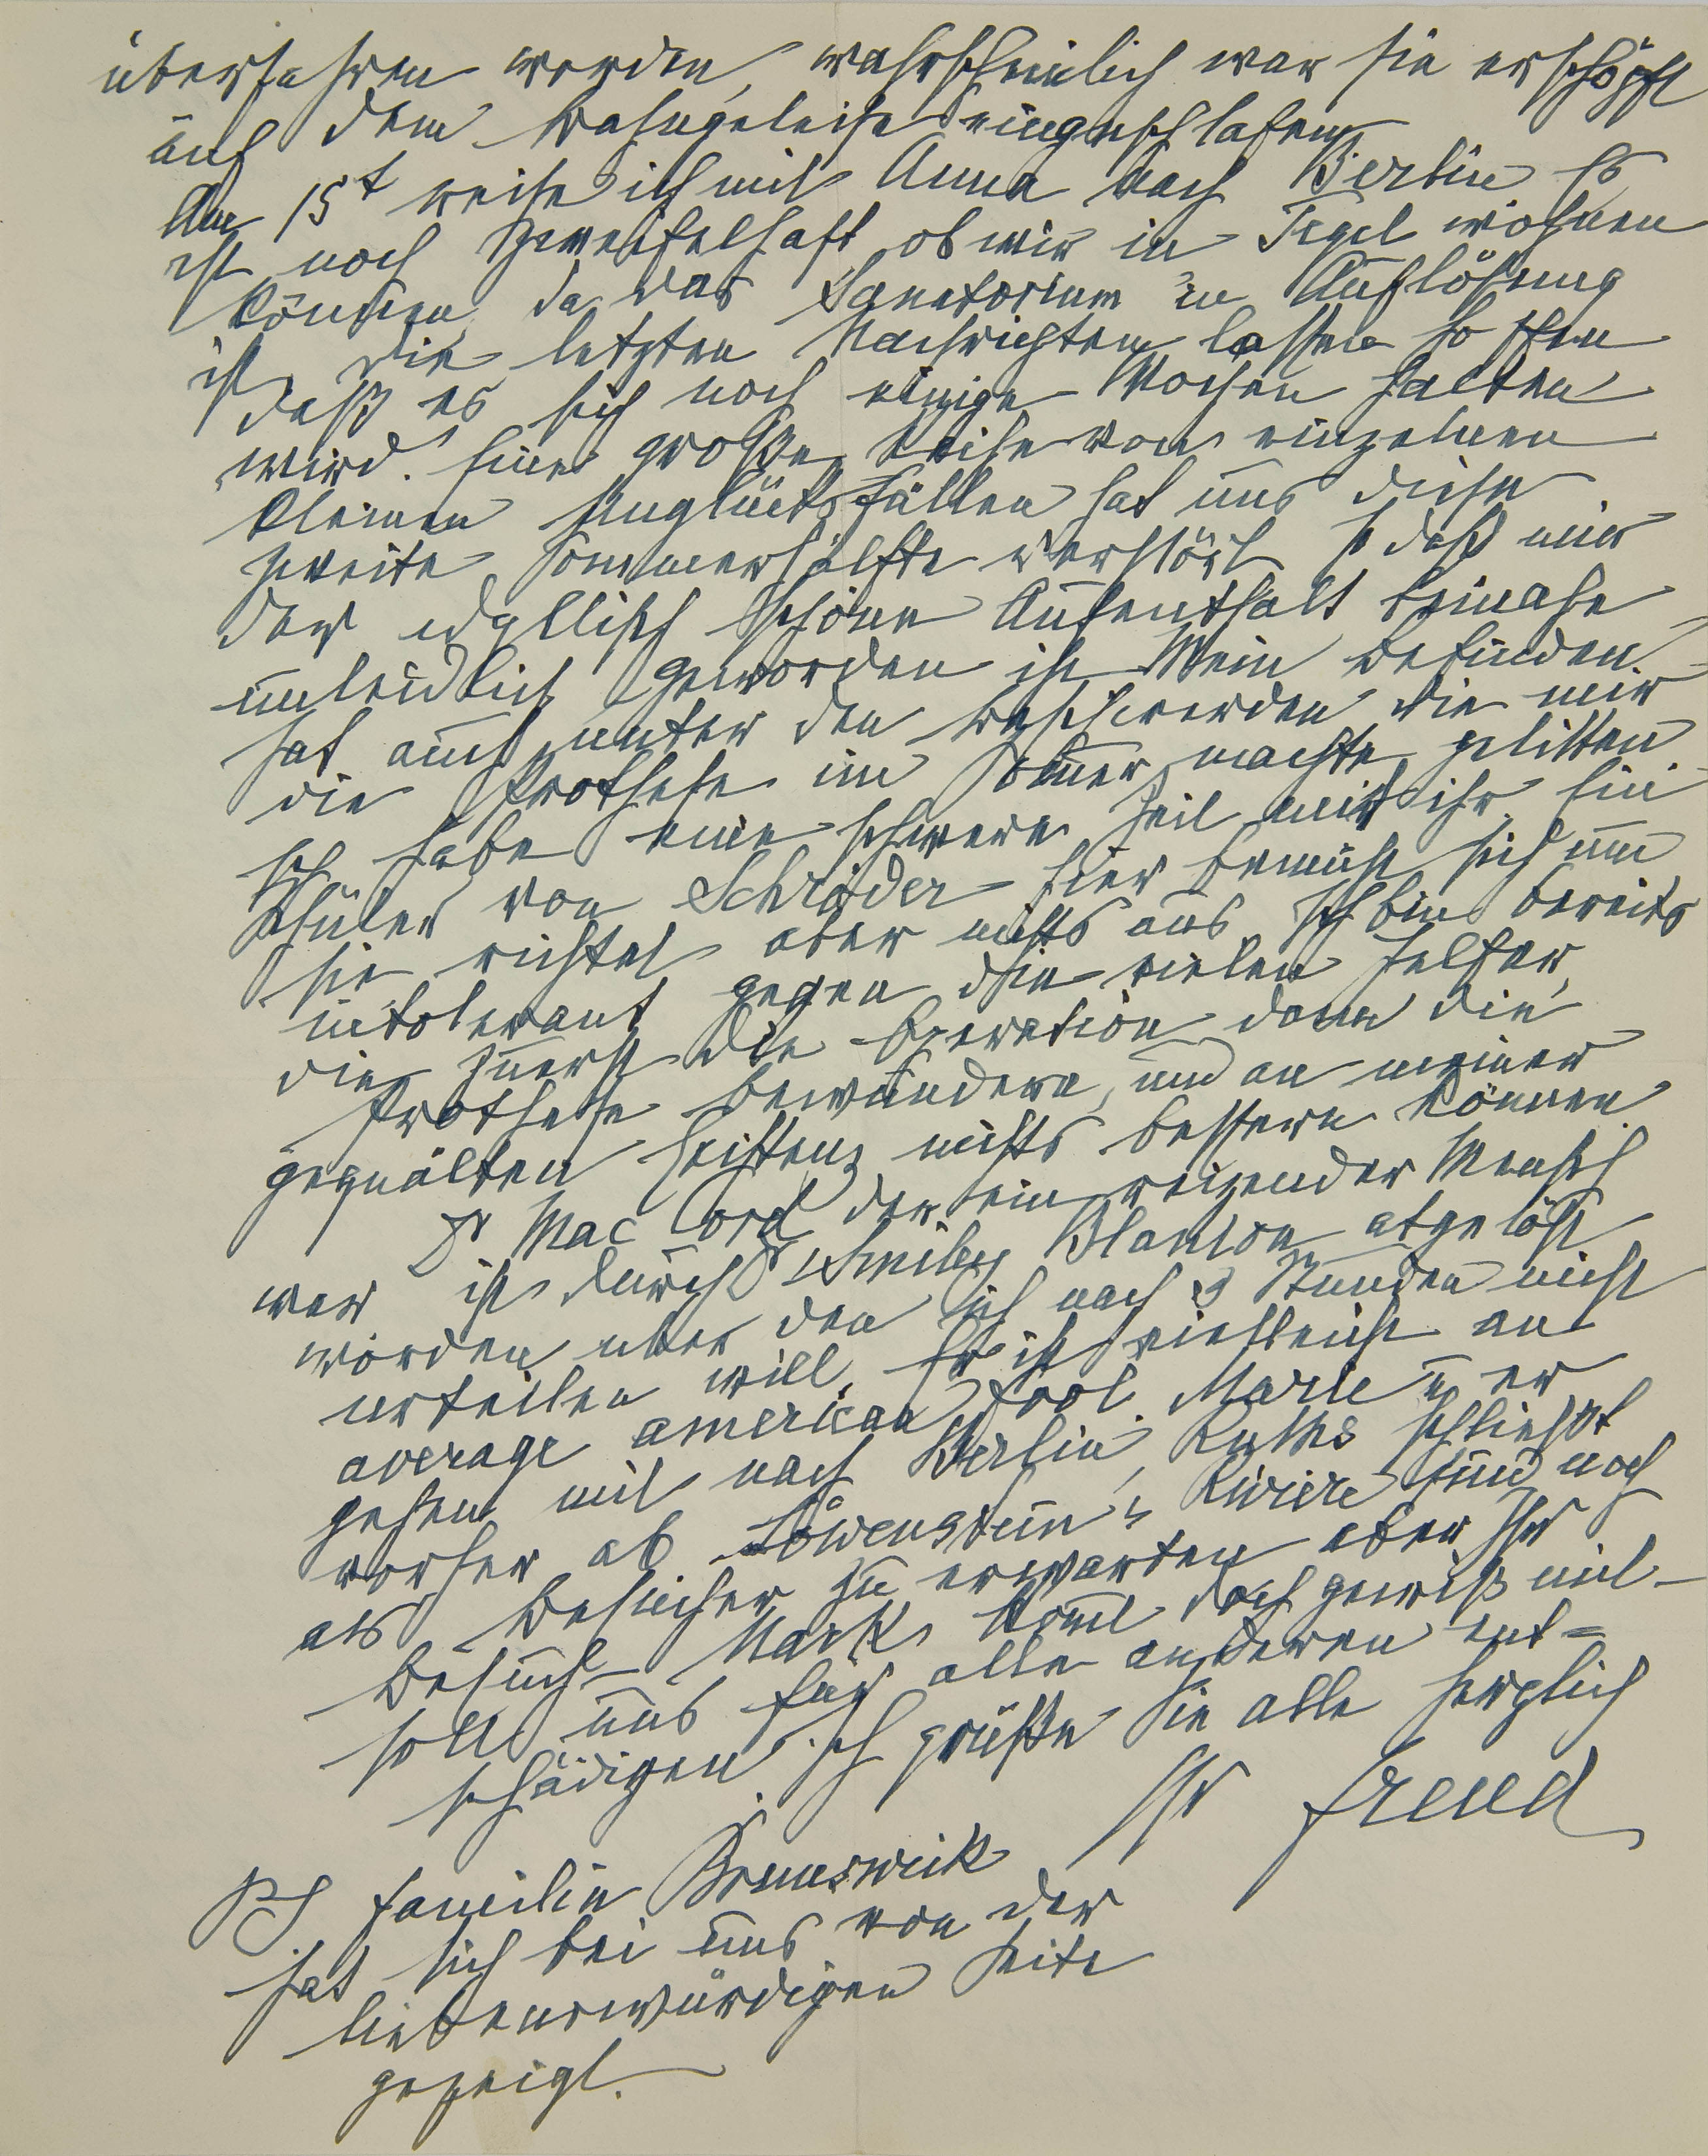 überfahren worden, wahrscheinlich war sie erschöpft
auf dem Bahngeleise eingeschlafen.
Am 15t reise ich mit Anna nach Berlin. Es
ist noch zweifelhaft, ob wir in Tegel wohnen
können, da das Sanatorium in Auflösung
ist, die letzten Nachrichten lassen hoffen
daß es sich noch einige Wochen halten
wird. Eine große Reihe von einzelnen
kleinen Unglücksfällen hat uns diese
zweite Sommerhälfte verstört so daß mir
der idyllisch schöne Aufenthalt beinahe
unleidlich geworden ist. Mein Befinden
hat auch unter den Beschwerden die mir
die Prothese im Som̅er machte, gelitten
Ich habe eine schwere Zeit mit ihr. Ein
Schüler von Schröder hier bemüht sich um
sie richtet aber nichts aus. Ich bin bereits
intolerant gegen die vielen Helfer,
die zuerst die Operation dann die
Prothese bewundern, und an meiner
gequälten Existenz nichts bessern können.
Dr Mac Cord der ein reizender Mensch
war ist durch Dr Smiley Blanton abgelöst
worden über den ich nach 3 Stunden nicht
urteilen will. Er ist vielleicht an
average american fool. Marie u er
gehen mit nach Berlin, Ruths schließt
vorher ab. Löwenstein u Riviere sind noch
als Besucher zu erwarten aber Ihr
Besuch Mark kom̅t doch gewiß mit
soll uns für alle anderen ent=
schädigen. Ich grüße Sie alle herzlich
Ihr Freud
PS Familie Brunswick
hat sich bei uns von der
liebenswürdigen Seite
gezeigt.